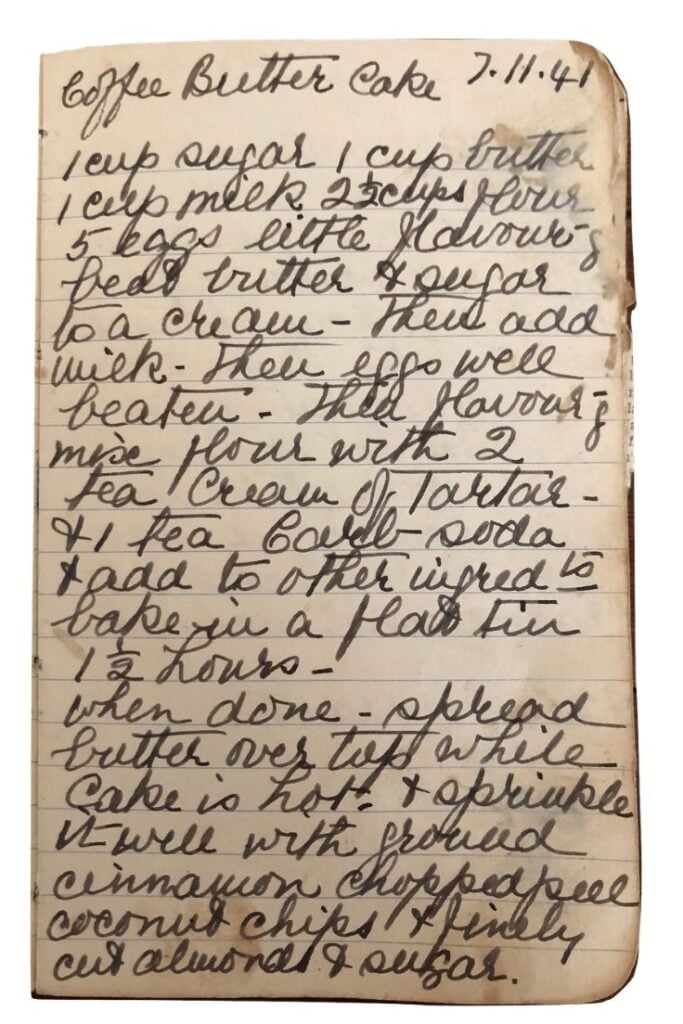 Coffee Butter Cake 7.11.41
1 cup sugar 1 cup butter
1 cup milk 2½ cups flour
5 eggs little flavour-g
beat butter & sugar
to a cream - then add
milk - then eggs well
beaten - then flavour-g
mix flour with 2
tea Cream of Tartar -
& 1 tea Carb soda
& add to other ingredts
bake in a flat tin
1½ hours -
when done - spread
butter over top while
Cake is hot - & sprinkle
it well with ground
cinnamon chopped peel
coconut chips & finely
cut almonds & sugar.